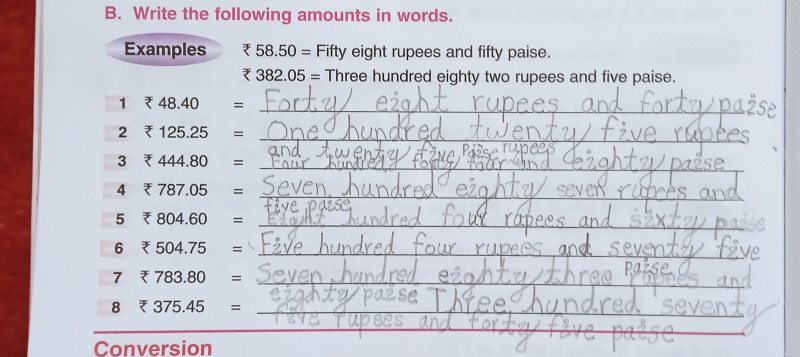 B. Write the following amounts in words.
Examples ₹ 58.50 = Fifty eight rupees and fifty paise.
₹ 382.05 = Three hundred eighty two rupees and five paise.
1 ₹ 48.40 = Forty eight rupees and forty paise
2 ₹ 125.25 = One hundred twenty five rupees
and twenty five paise
3 ₹ 444.80 = Four hundred forty four rupees and eighty paise
4 ₹ 787.05 = Seven hundred eighty seven rupees and
five paise
5 ₹ 804.60 = Eight hundred four rupees and sixty paise
6 ₹ 504.75 = Five hundred four rupees and seventy five
paise
7 ₹ 783.80 = Seven hundred eighty three rupees and
eighty paise
8 ₹ 375.45 = Three hundred seventy
five rupees and forty five paise
Conversion